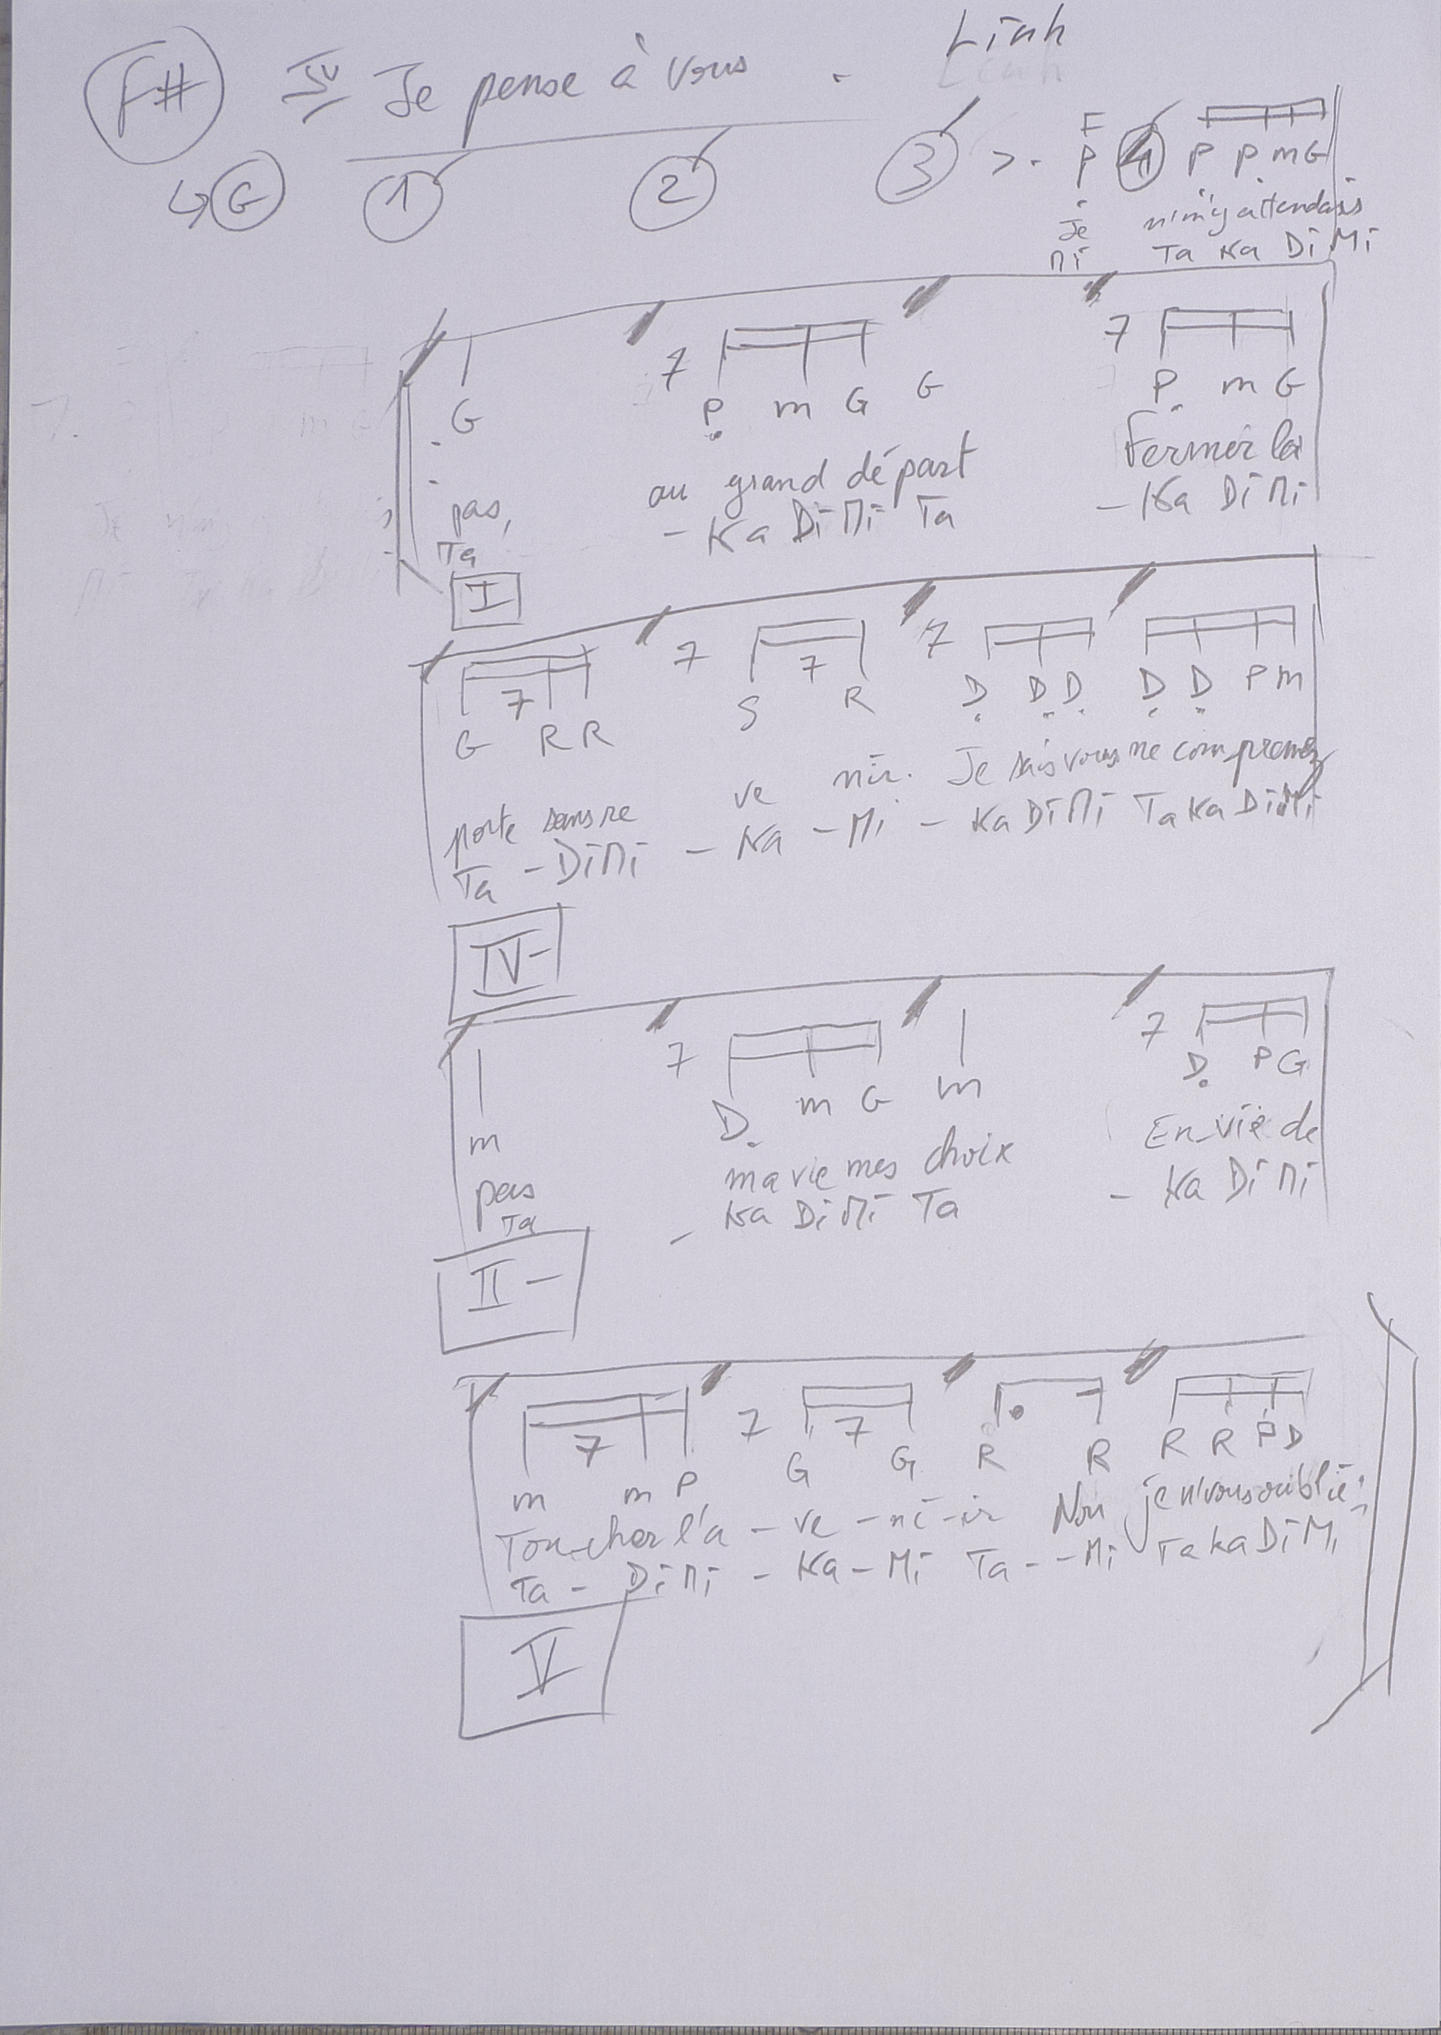 F# IV Je pense à vous . Linh
↳ G 1 2 3 7. P 4 P P m G
Je n'm'y attendais
Mi Ta Ka Di Mi
G 7 P m G G 7 P m G
pas, au grand départ Fermer la
Ta - Ka Di Mi Ta - Ka Di Mi
I
G 7 R R 7 S 7 R 7 D D D D D P m
porte sans re ve nir. Je sais vous ne comprenez
Ta - Di Mi - Ka - Mi - Ka Di Mi Ta Ka Di Mi
IV-
m 7 D m G m 7 D P G
pas ma vie mes choix En-vie de
Ta - Ka Di Mi Ta - Ka Di Mi
II -
m 7 m P 7 G 7 G R . R R R P D
Tou-cher l'a - ve - ni - ir Non je n'vous oublie
Ta - Di Mi - Ka - Mi Ta - - Mi Ta Ka Di Mi
V